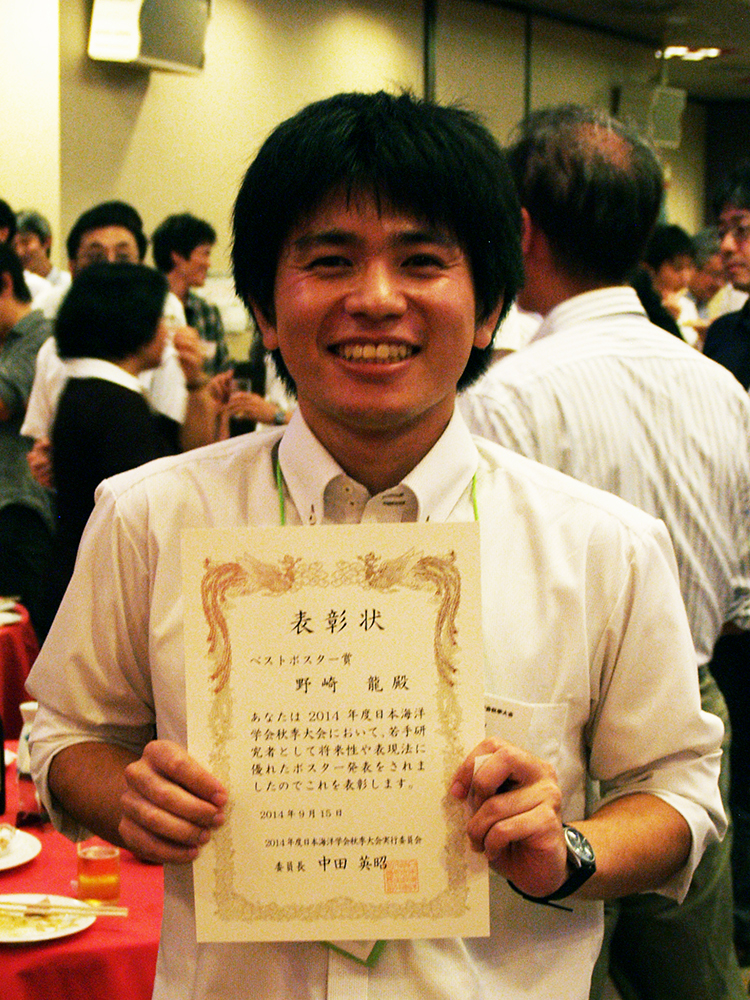 表彰状
ベストポスター賞
野崎 龍 殿
あなたは 2014 年度日本海洋
学会秋季大会において、若手研
究者として将来性や表現法に
優れたポスター発表をされま
したのでこれを表彰します。
2014年9月15日
2014年度日本海洋学会秋季大会実行委員会
委員長 中田 英昭